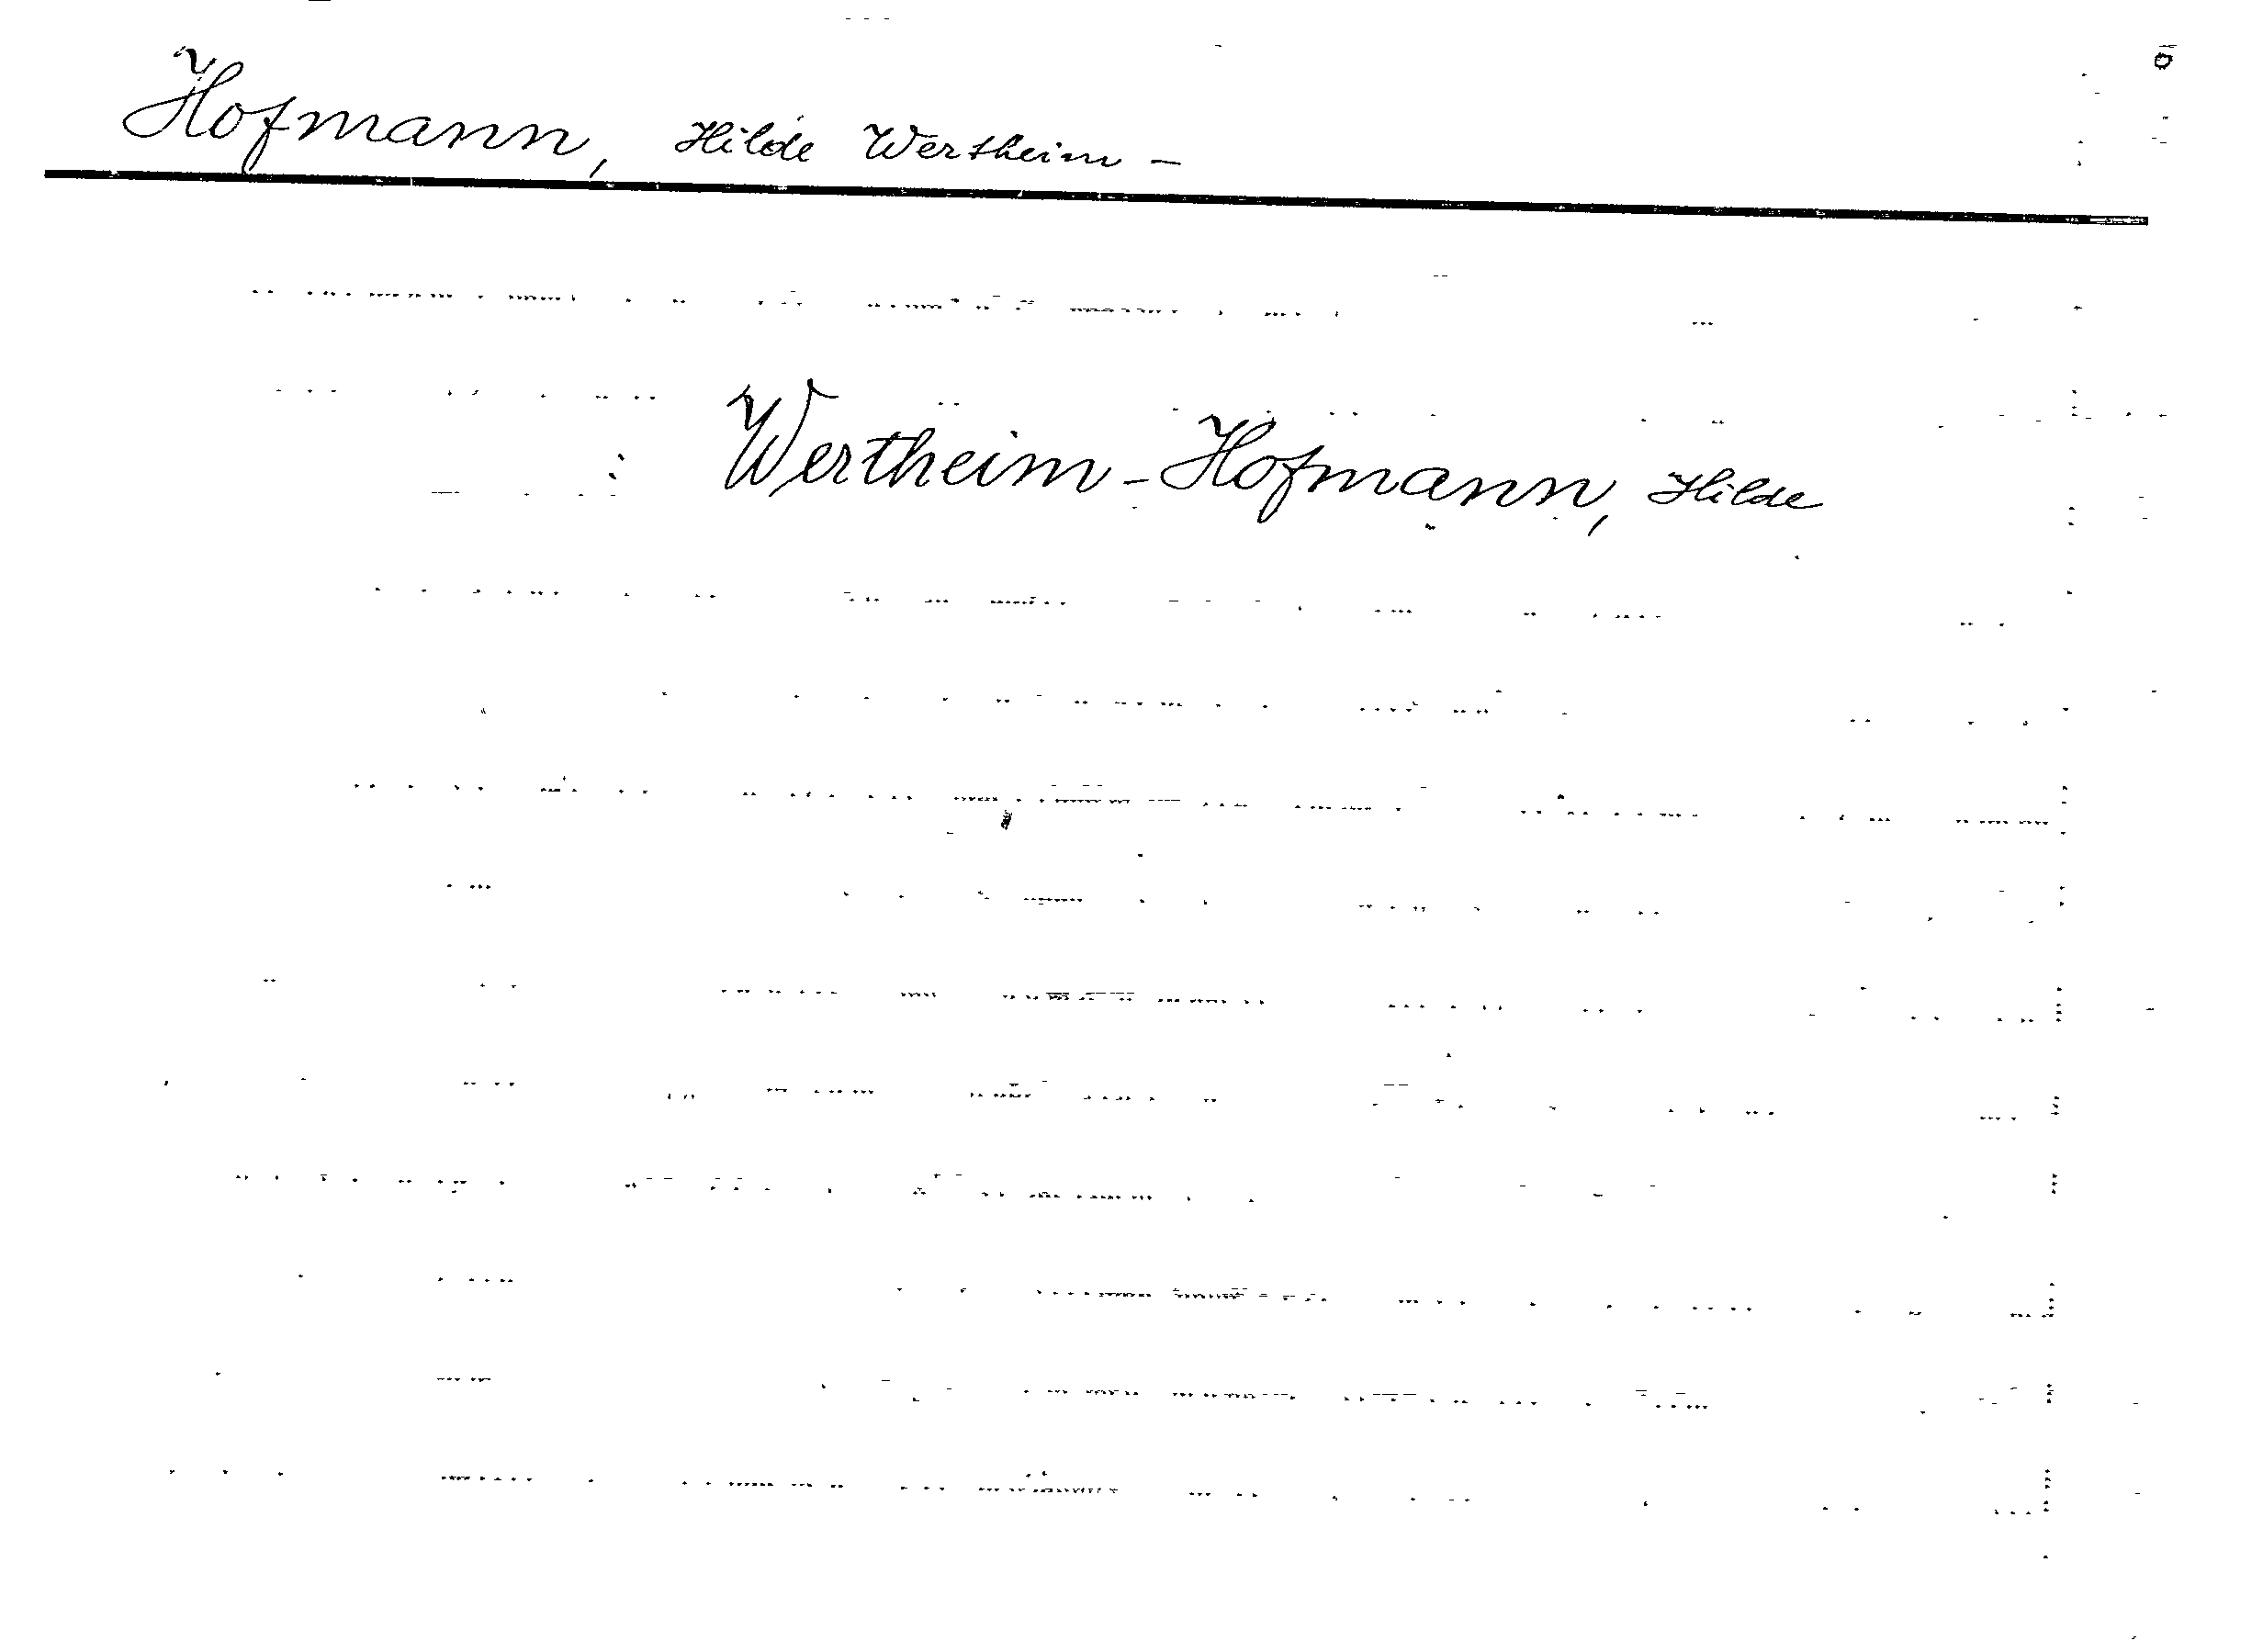 Hofmann, Hilde Wertheim –
Wertheim - Hofmann, Hilde